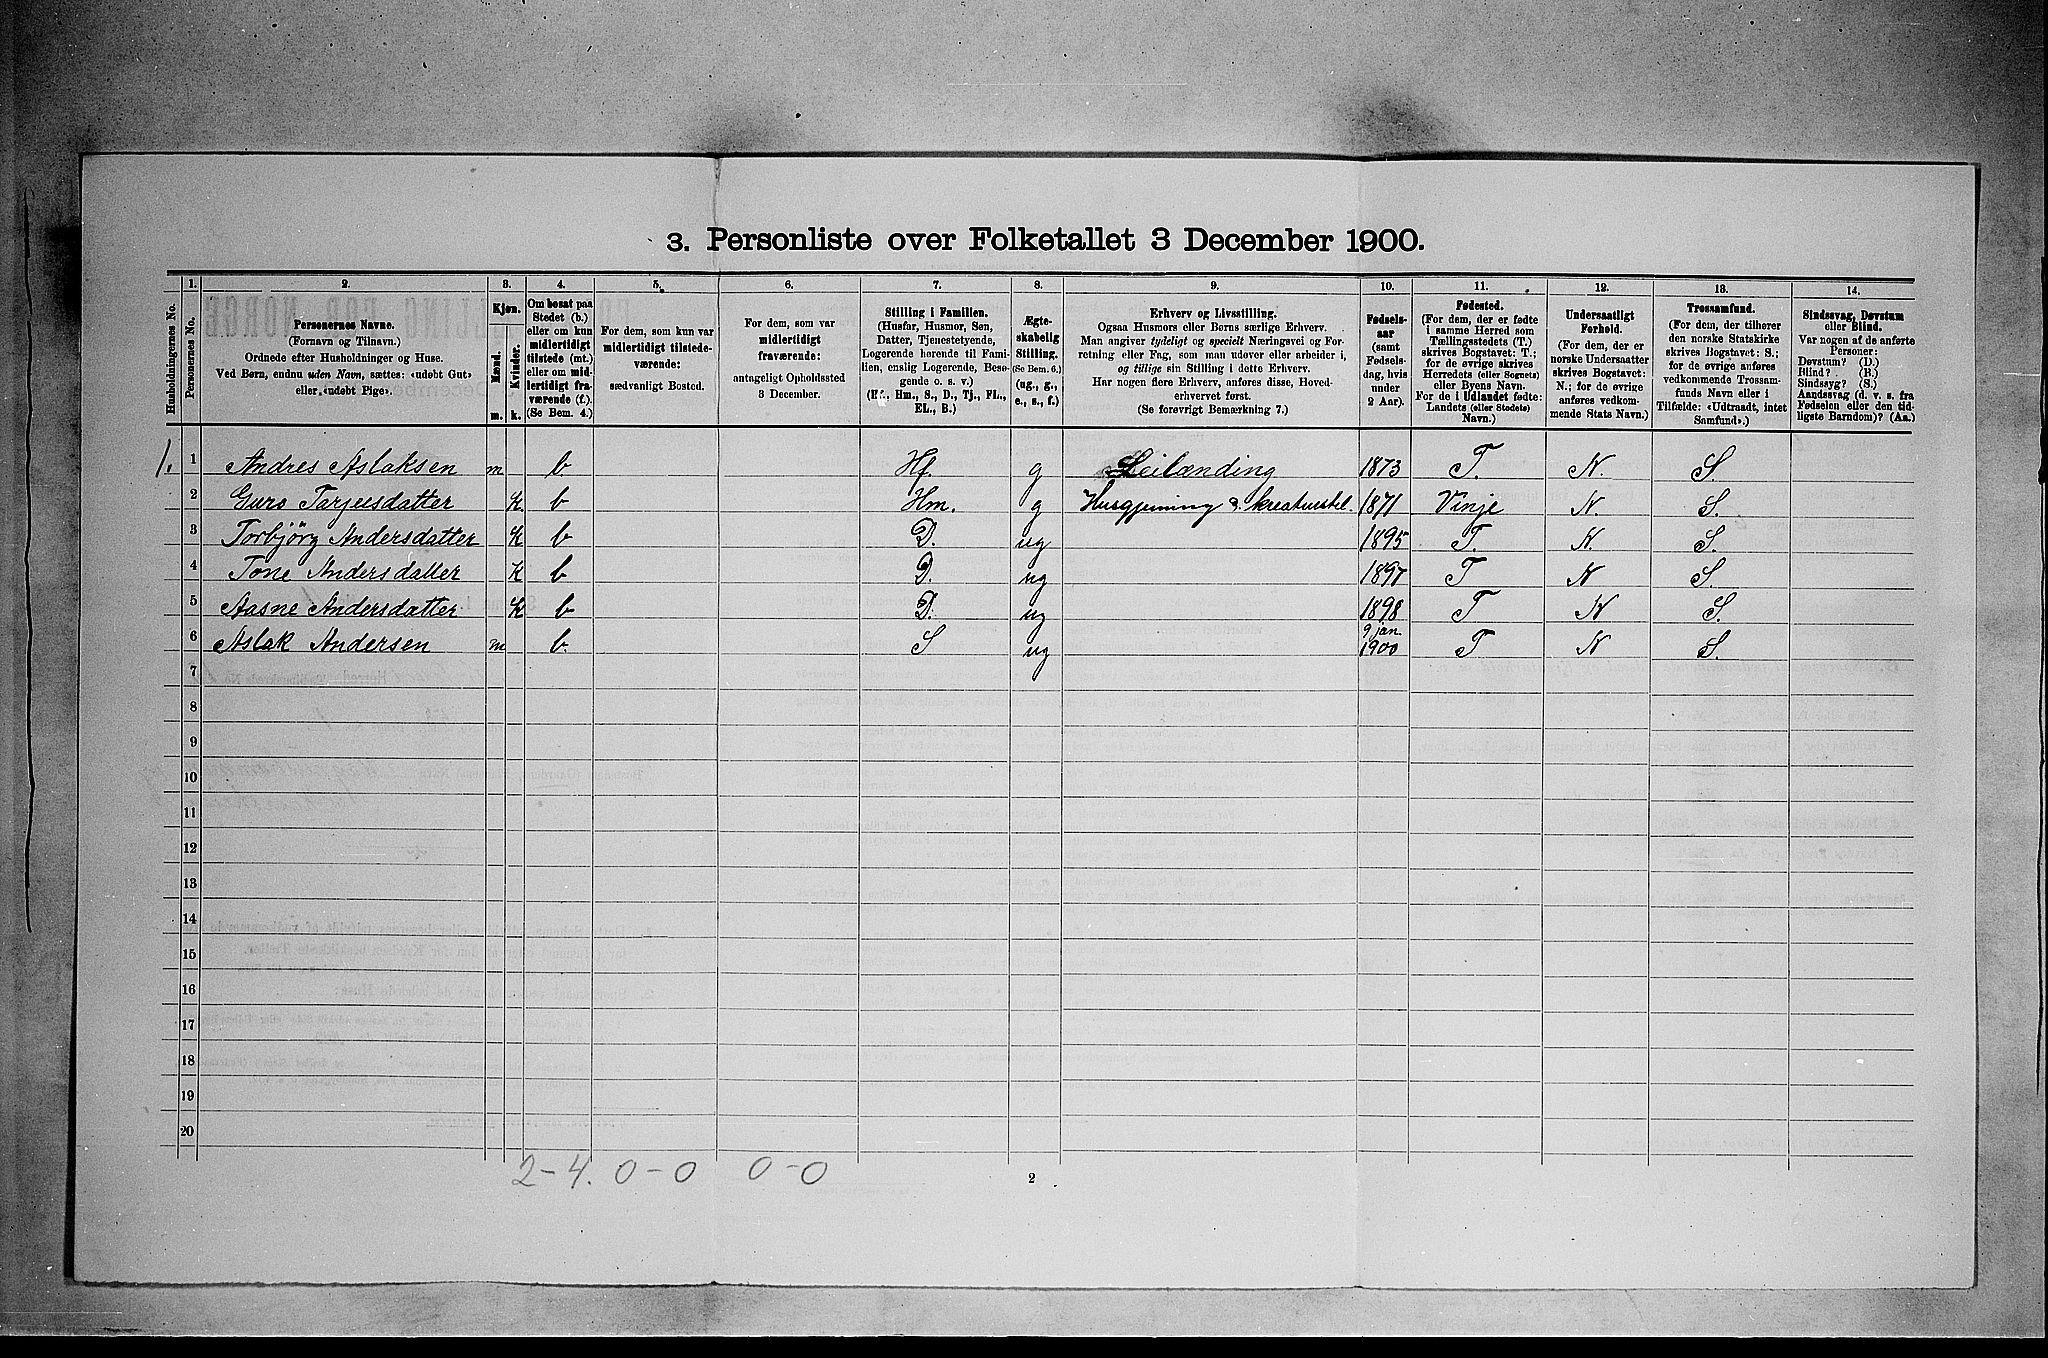 3. Personliste over Folketallet 3 December 1900.
Husholdningernes No.
1.
Personernes No.
2.
Personernes Navne.
(Fornavn og Tilnavn.)
Ordnede efter Husholdninger og Huse.
Ved Børn, endnu uden Navn, sættes: «udøbt Gut»
eller «udøbt Pige».
3.
Kjøn.
Mænd.
Kvinder.
m. k.
4.
Om bosat paa
Stedet (b.)
eller om kun
midlertidigt
tilstede (mt.)
eller om mid-
lertidigt fra-
værende (f.).
(Se Bem. 4.)
5.
For dem, som kun var
midlertidigt tilstede-
værende:
sædvanligt Bosted.
6.
For dem, som var
midlertidigt
fraværende:
antageligt Opholdssted
3 December.
7.
Stilling i Familien.
(Husfar, Husmor, Søn,
Datter, Tjenestetyende,
Logerende hørende til Fami-
lien, enslig Logerende, Besø-
gende o. s. v.)
(Hf., Hm., S., D., Tj., FL.,
EL., B.)
8.
Ægte-
skabelig
Stilling.
(Se Bem. 6.)
(ug., g.,
e., s., f.)
9.
Erhverv og Livsstilling.
Ogsaa Husmors eller Børns særlige Erhverv.
Man angiver tydeligt og specielt Næringsvei og For-
retning eller Fag, som man udøver eller arbeider i,
og tillige sin Stilling i dette Erhverv.
Har nogen flere Erhverv, anføres disse, Hoved-
erhvervet først.
(Se forøvrigt Bemærkning 7.)
10.
Fødsels-
aar
(samt
Fødsels-
dag, hvis
under
2 Aar).
11.
Fødested.
(For dem, der er fødte
i samme Herred som
Tællingsstedets (T.)
skrives Bogstavet: T.;
for de øvrige skrives
Herredets (eller Sognets)
eller Byens Navn.
For de i Udlandet fødte:
Landets (eller Stedets)
Navn.)
12.
Undersaatligt
Forhold.
(For dem, der er
norske Undersaatter
skrives Bogstavet:
N.; for de øvrige
anføres vedkom-
mende Stats Navn.)
13.
Trossamfund.
(For dem, der tilhører
den norske Statskirke
skrives Bogstavet: S.;
for de øvrige anføres
vedkommende Trossam-
funds Navn eller i
Tilfælde: «Udtraadt, intet
Samfund».)
14.
Sindssvag, Døvstum
eller Blind.
Var nogen af de anførte
Personer:
Døvstum? (D.)
Blind? (B.)
Sindssyg? (S.)
Aandssvag (d. v. s. fra
Fødselen eller den tid-
ligste Barndom)? (Aa.)
1. 1 Andres Aslaksen m b Hf. g Leilænding 1873 T. N. S.
2 Guro Tarjeisdatter K b Hm. g Husgjerning & kreaturstel. 1871 Vinje N. S.
3 Torbjörg Andersdatter K b D. ug 1895 T. N. S.
4 Tone Andersdatter K b D. ug 1897 T N S.
5 Aasne Andersdatter K b D. ug 1898 T N S.
6 Aslak Andersen m b. S ug 9 jan. 1900 T N S.
7
8
9
10
11
12
13
14
15
16
17
18
19
20
2-4. 0-0 0-0
2